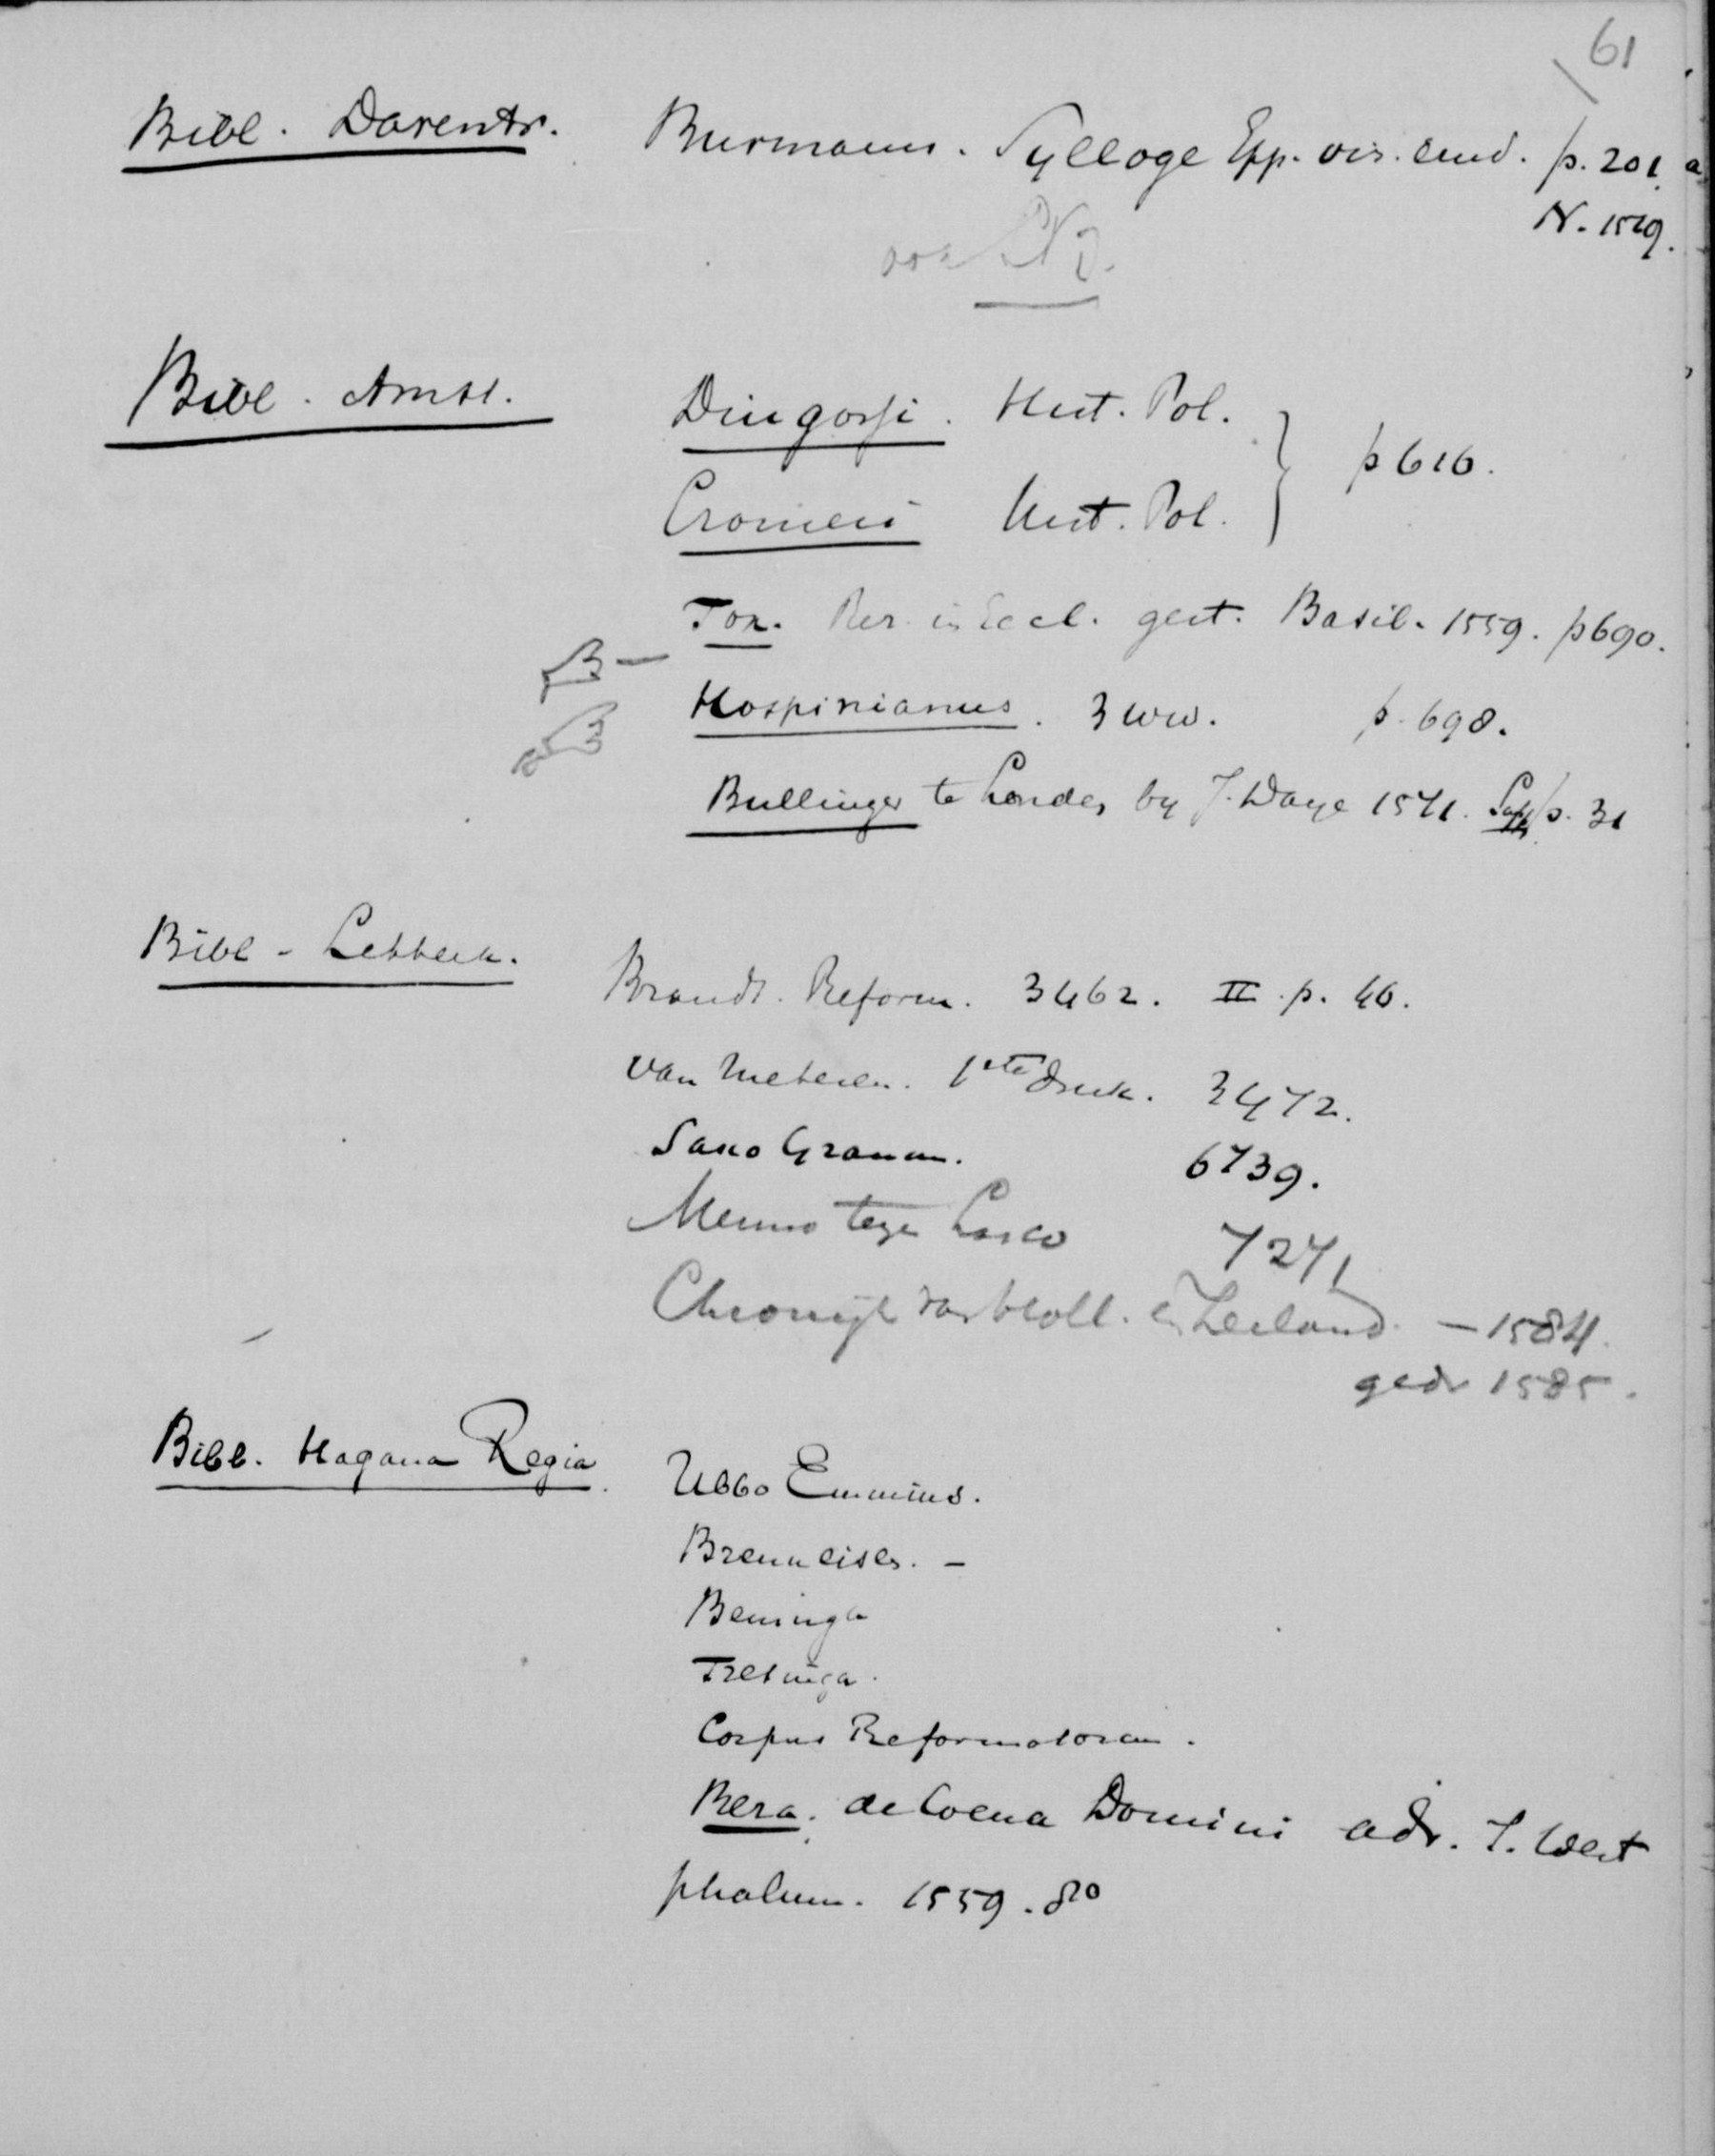 61
Bibl. Davent. Burmann. Sylloge Epp. vir. erud. p. 201. a
N. 1529.
Bibl. Amst. Dlugossi. Hist. Pol.
Cromeri Hist. Pol. } p 616.
Fox. Rer. in Eccl. gest. Basil. 1559. p 690.
Hospinianus. 3 ww. p. 698.
Bullinger te Londen by J. Daye 1571. Supp. p. 31
Bibl. Lettterk.
Brandt. Reform. 3462. II. p. 46.
van Meteren. 1ste druk. 3472.
Saxo Gramm. 6739.
Menno tege Lasco 7271
Chronijk van Holl. en Zeeland. — 1584.
gedr 1585.
Bibl. Hagana Regia. Ubbo Emmius.
Brenneisen. —
Beninga
Corpus Reformatorum.
Beza. de Coena Domini adv. J. West
phalum. 1559. 8vo